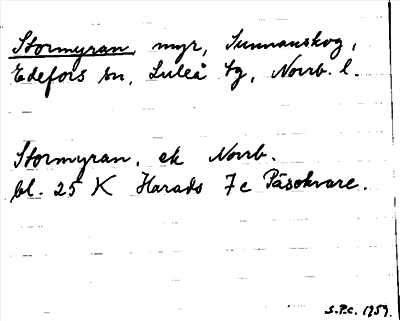 Stormyran, myr, Sunnanskog,
Edefors sn, Luleå tg, Norrb. l.
Stormyran, ek Norrb.
bl. 25 K Harads 7e Päsokvare.
S.P.C. 1959.